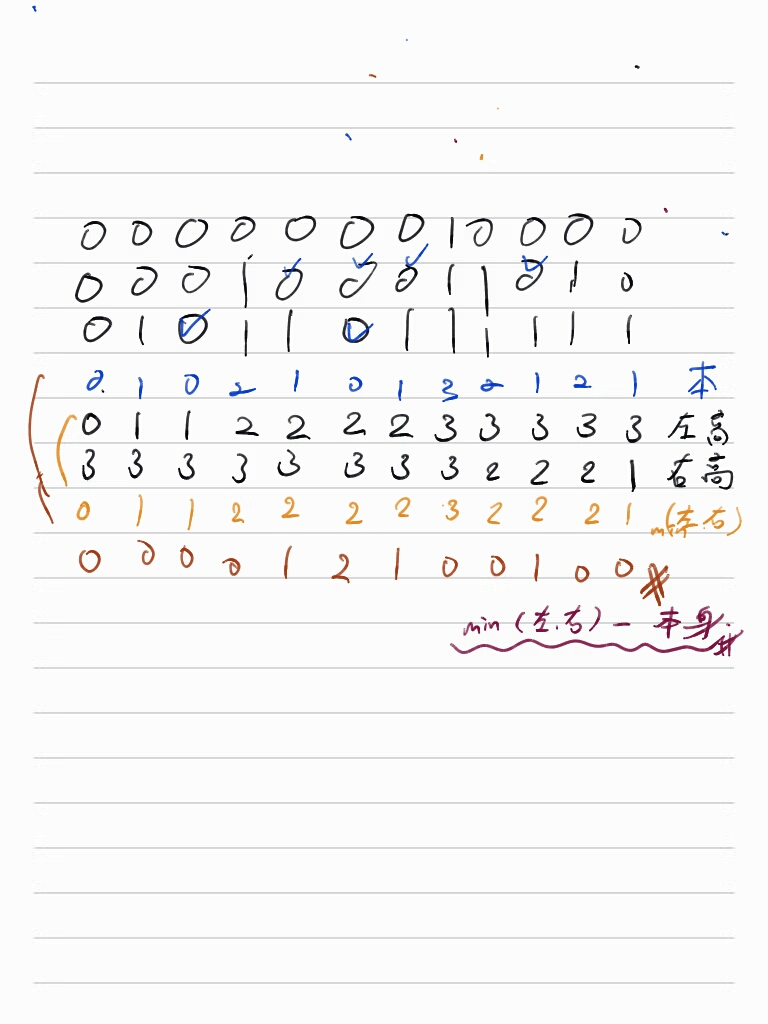 0 0 0 0 0 0 0 1 0 0 0 0
0 0 0 1 0 0 0 1 1 0 1 0
0 1 0 1 1 0 1 1 1 1 1 1
0 1 0 2 1 0 1 3 2 1 2 1 本
0 1 1 2 2 2 2 3 3 3 3 3 左高
3 3 3 3 3 3 3 3 2 2 2 1 右高
0 1 1 2 2 2 2 3 2 2 2 1 min(左.右)
0 0 0 0 1 2 1 0 0 1 0 0 #
min (左.右) - 本身. #